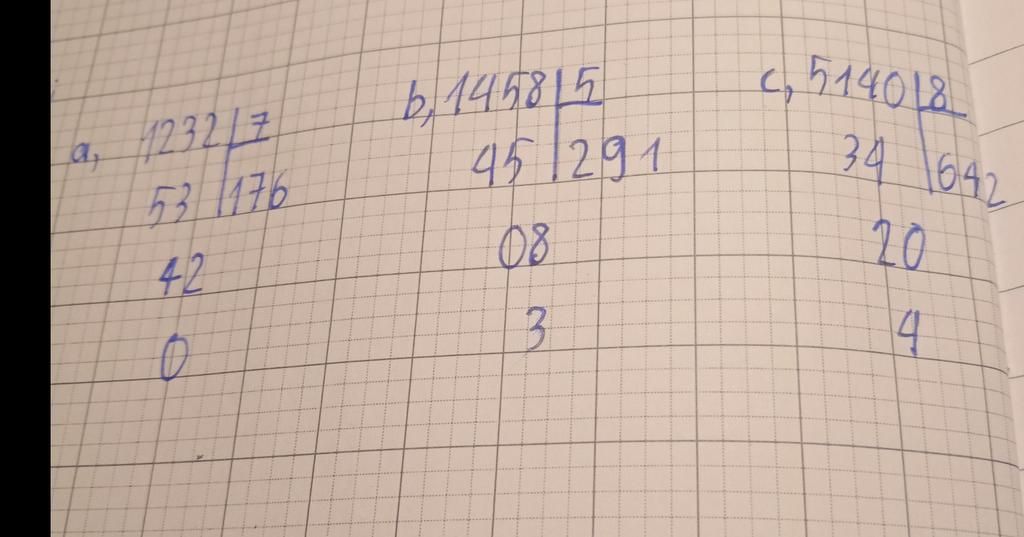 a, 1232 7
53 176
42
0
b, 1458 5
45 291
08
3
c, 5140 8
34 642
20
4